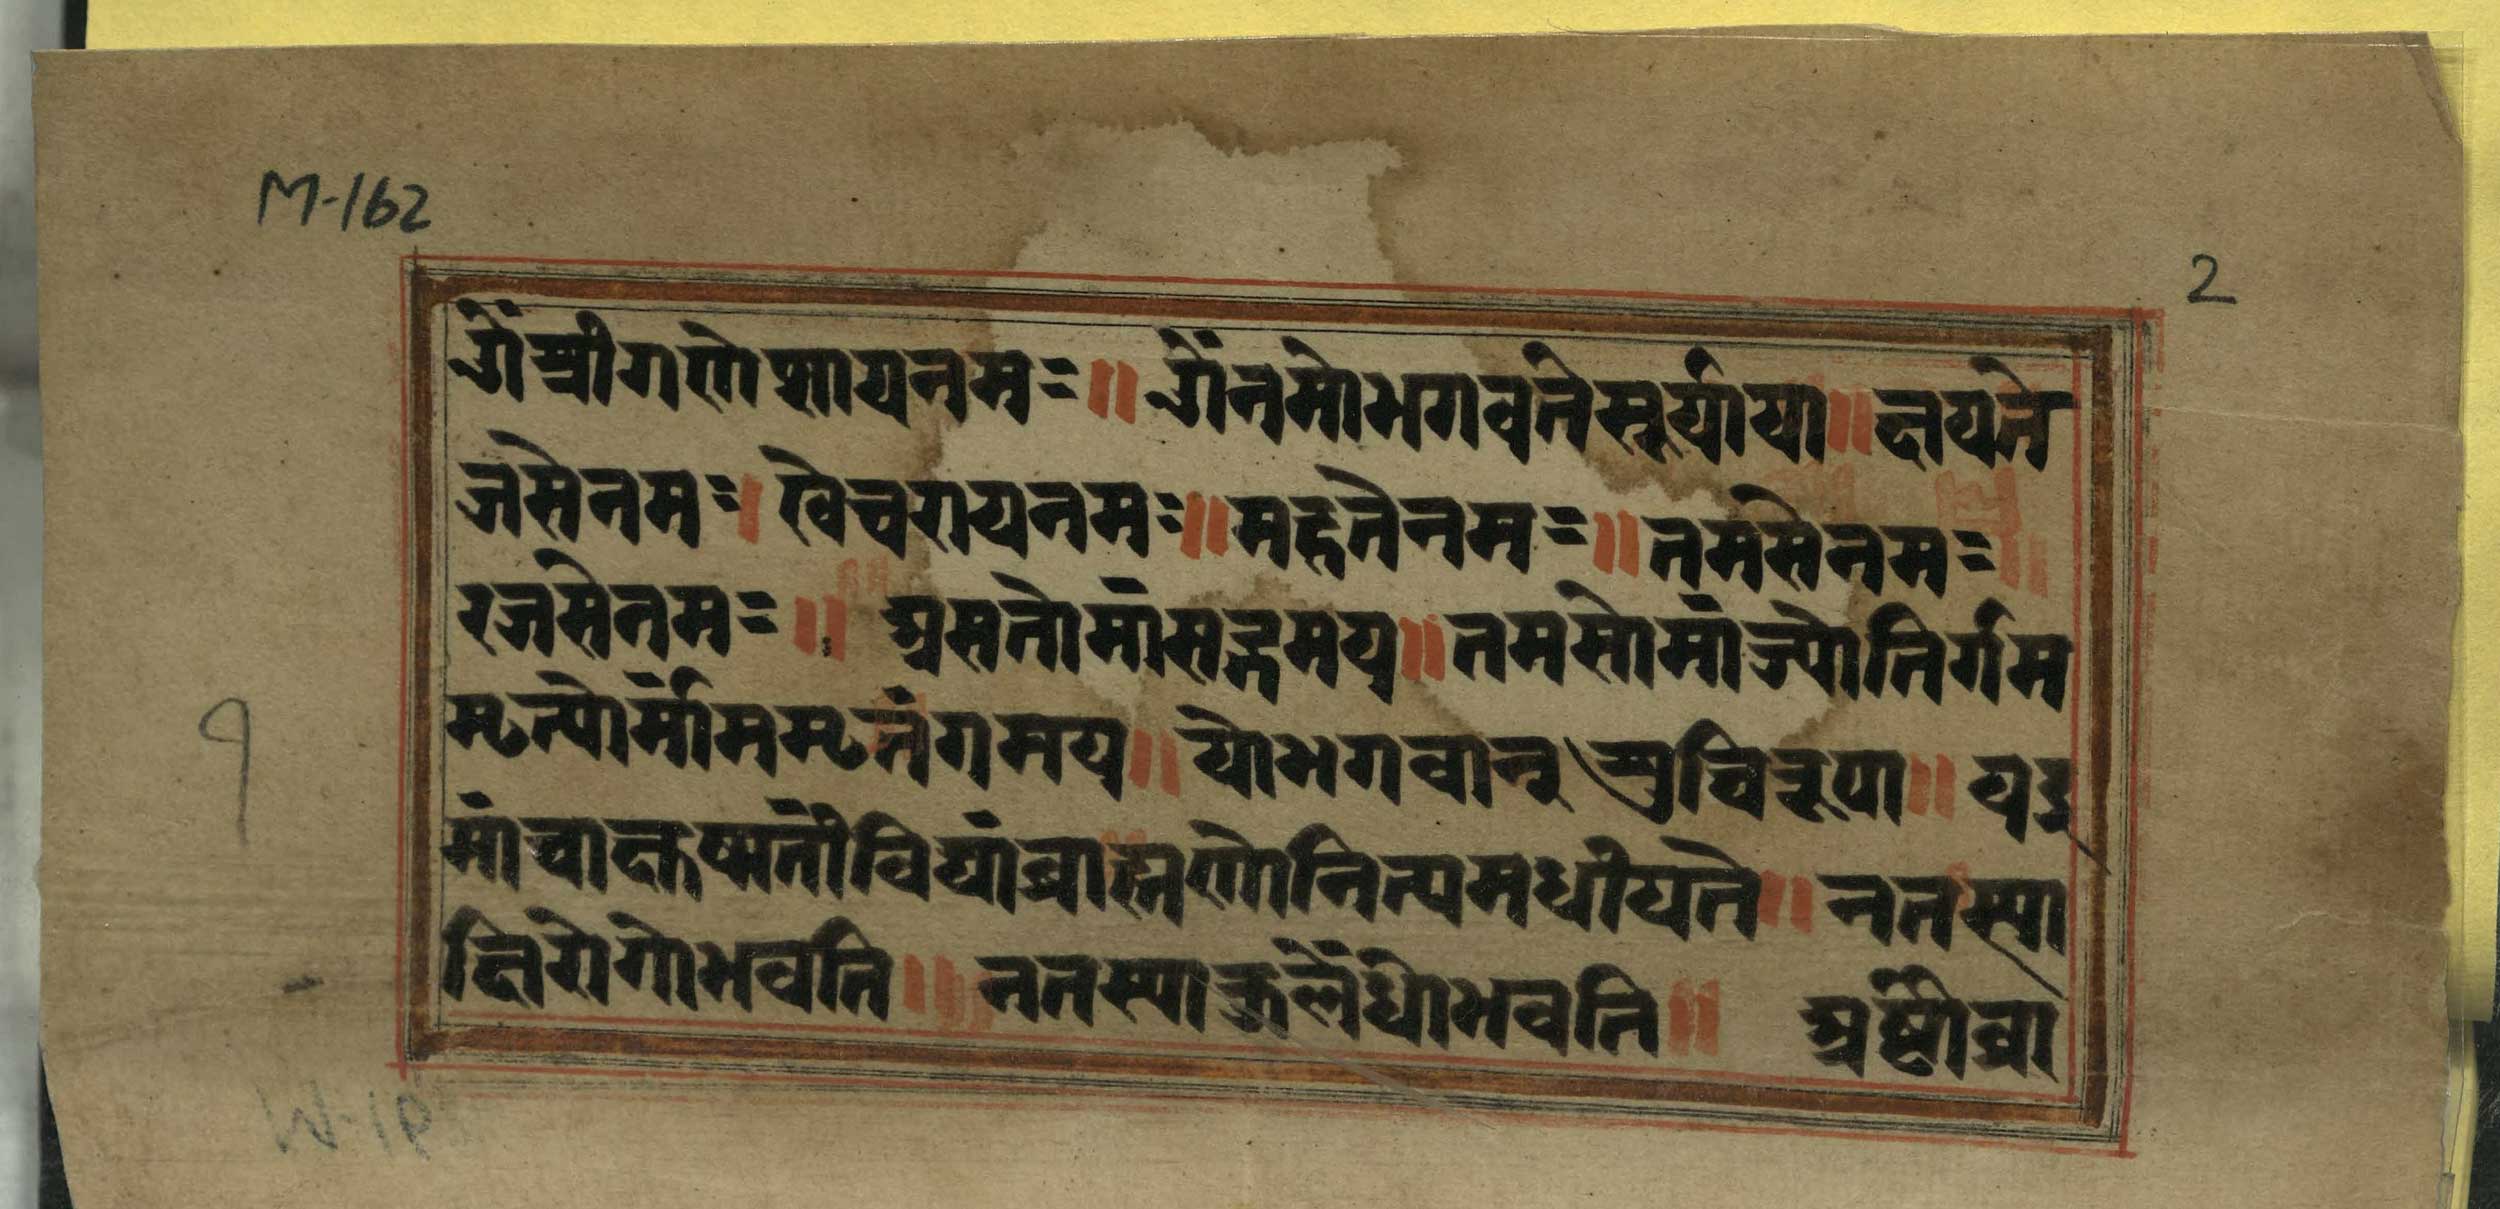 M-162
2
ॐश्रीगणेशायनमः॥ ॐनमोभगवतेसूर्याया॥क्षयते
जसेनमः।खेचरायनमः॥महतेनमः॥तमसेनमः
रजसेनमः॥ असतोमांसद्गमय॥तमसोमांज्योतिर्गम
मृत्योर्मांममृतंगमय॥योभगवान्शुचिरूपा॥ य इ
मांचाक्षष्मतींविद्यांब्राह्मणोनित्यमधीयते॥नतस्या
क्षिरोगोभवति॥ नतस्याकुलेंधोभवति॥ अष्टौब्रा
१